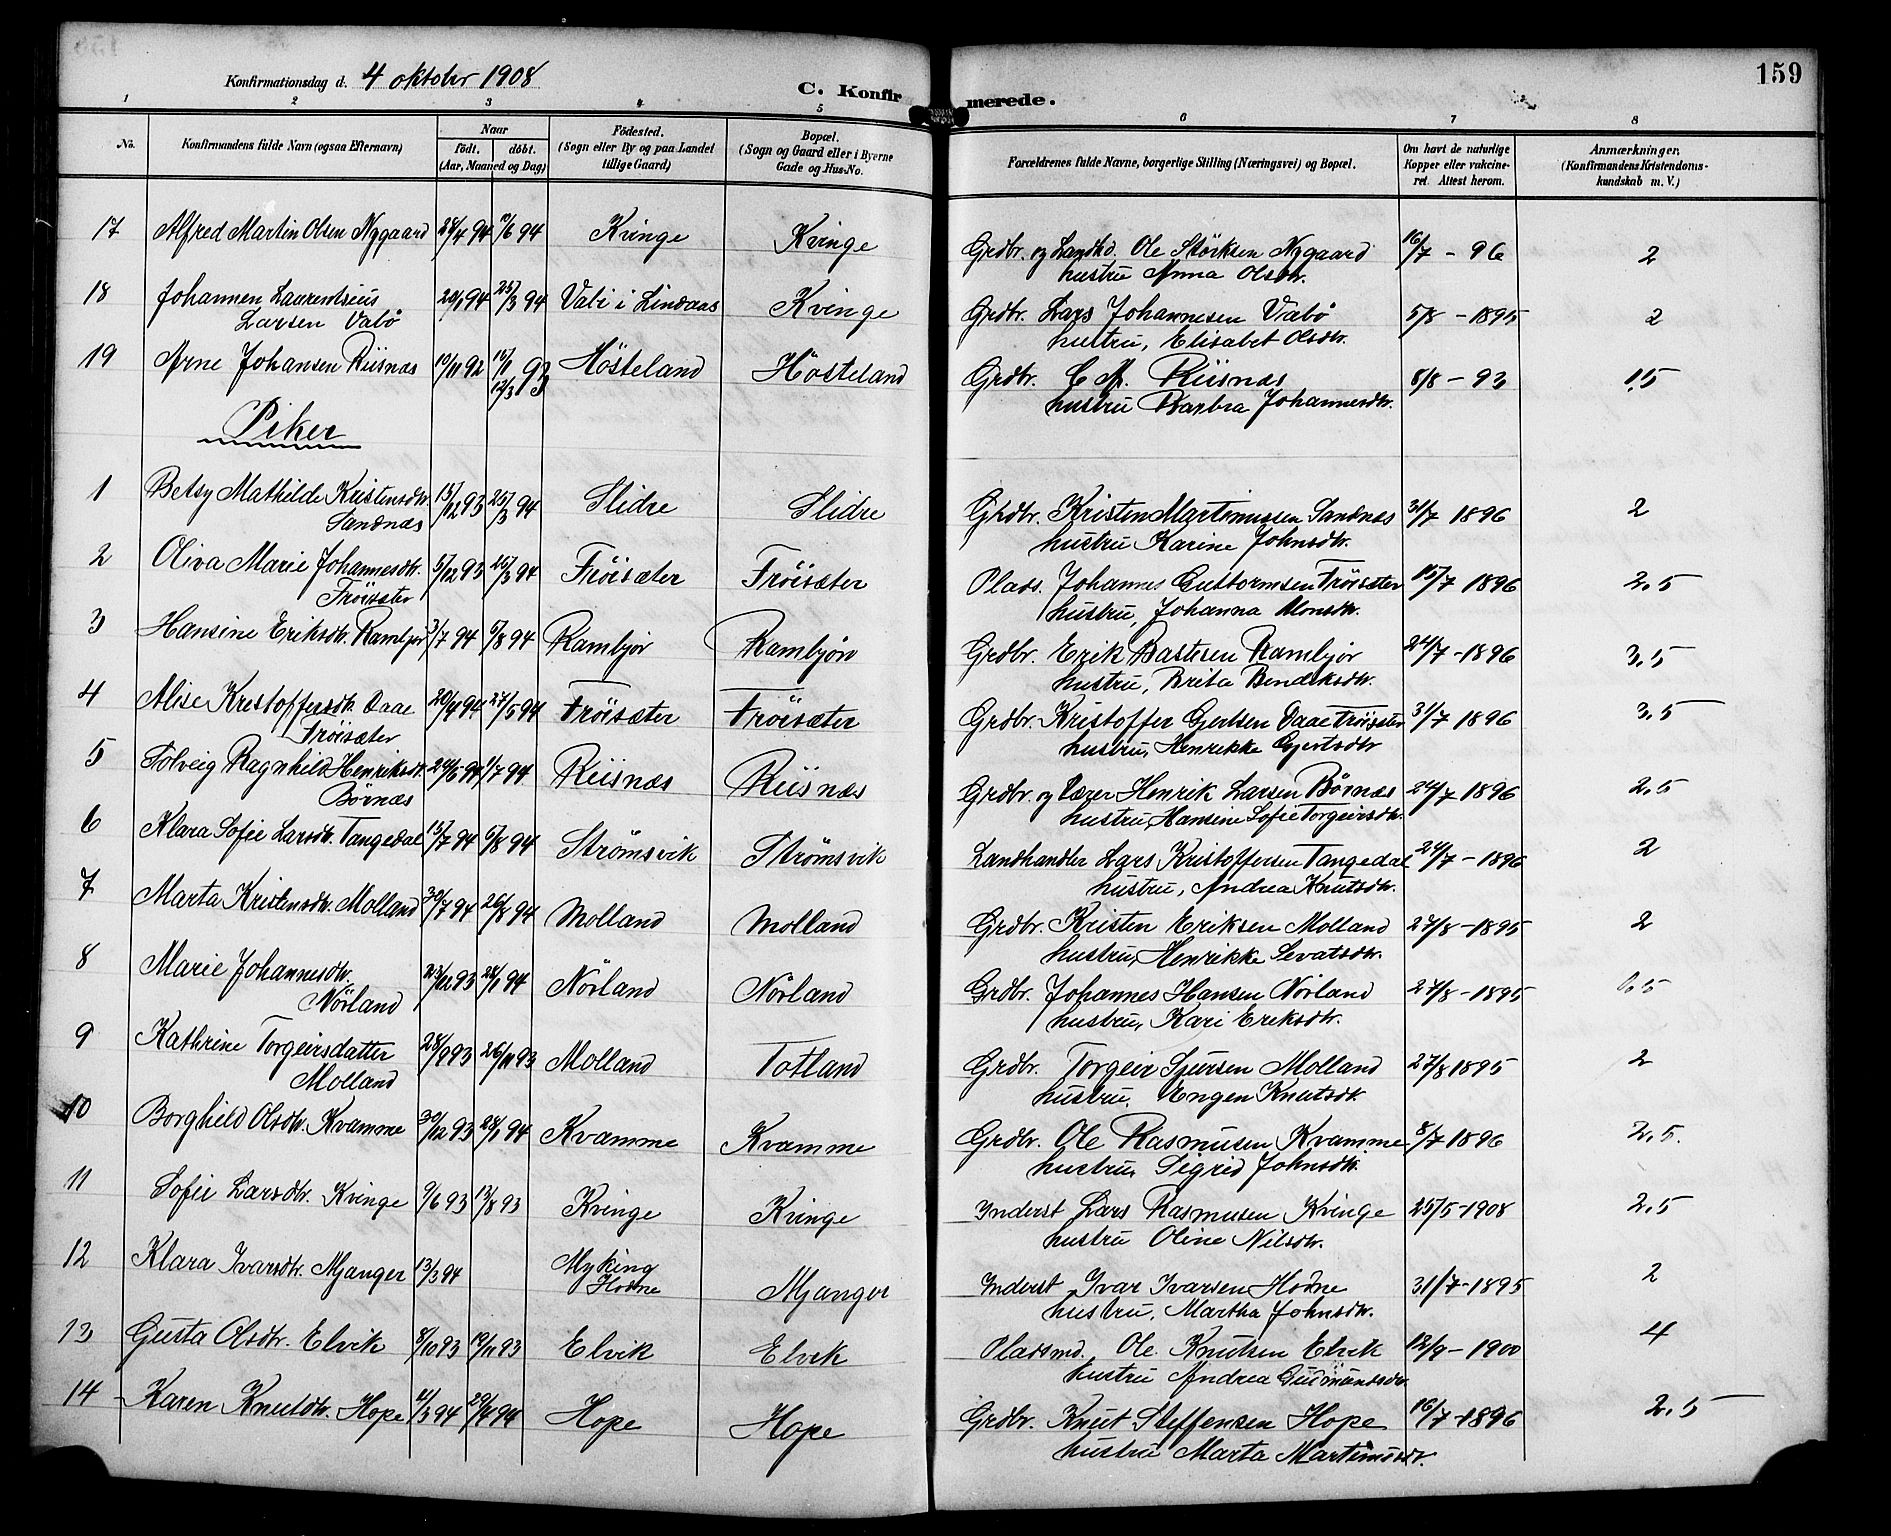 159
Konfirmationsdag d. 4 oktober 1908
C. Konfirmerede.
1 2 3 4 5 6 7 8
No.
Konfirmandens fulde Navn (ogsaa Efternavn)
Naar
født. døbt.
(Aar, Maaned og Dag)
Fødested.
(Sogn eller By og paa Landet
tillige Gaard)
Bopæl.
(Sogn og Gaard eller i Byerne
Gade og Hus-No.
Forældrenes fulde Navne, borgerlige Stilling (Næringsvei) og Bopæl.
Om havt de naturlige
Kopper eller vakcine-
ret. Attest herom.
Anmærkninger,
(Konfirmandens Kristendoms-
kundskab m. V.)
17 Alfred Martin Olsen Nygaard 28/4 94 10/6 94 Kvinge Kvinge Grdbr. og Landhd. Ole Störksen Nygaard 16/7 - 96 2
hustru Anna Olsdtr.
18 Johannen Laurentsius 94 25/3 94 Vabö i Lindaas Kvinge Grdbr. Lars Johannesen Vabö 5/8 - 1895 2
Larsen Vabø
hustru, Elisabet Olsdtr.
19 Arne Johansen Riisnæs 10/11 92 93 Hösteland Hösteland Grdbr. Riisnæs 8/8 - 93 1.5
12/3
hustru Barbra Johannesdtr.
Piker
1 Betsy Mathilde Kristensdtr. 15/12 93 25/3 94 Slidre Slidre Grdbr. Kristen Martinussen Sandnæs 31/7 1896 2
Sandnæs
hustru Karine Johnsdtr.
2 Oliva Marie Johannesdtr. 5/12 93 26/3 94 Fröisæter Fröisæter Plads. Johannes Guttormsen Fröisæter 15/7 1896 2,5
Fröisæter
hustru, Johanna Monsdtr.
3 Hansine Eriksdtr. Rambjör 3/7 94 5/8 94 Rambjör Rambjörn Grdbr. Erik Bastesen Rambjör 24/7 - 1896 3,5
hustru, Brita Bendiksdtr.
4 Alise Kristoffersdtr. Daae 20/4 94 27/5 94 Fröisæter Fröisæter Grdbr. Kristoffer Gjertsen Daae Fröisæter 31/7 1896 3,5
Fröisæter
hustru, Henrikke Gjertsdtr
5 Solveig Ragnhild Henriksdtr. 24/5 94 1/7 94 Riisnæs Riisnæs Grdbr. og Lærer Henrik Larsen Börnæs 24/7 1896 2,5
Börnæs
hustru, Hansene Sofie Torgeirsdtr.
6 Klara Sofie Larsdtr. Tangedal 15/7 94 5/8 94 Strömsvik Strömsvik Landhandler Lars Kristoffersen Tangedal 24/7 - 1896 2
hustru, Andrea Knutsdtr.
7 Marta Kristensdtr. Molland 30/7 94 26/8 94 Molland Molland Grdbr. Kristen Eriksen Molland 27/8 - 1895 2
hustru, Henrikke Sevatsdtr.
8 Marie Johannesdtr. 23/12 93 28/1 94 Nörland Nörland Grdbr. Johannes Hansen Nörland 27/8 - 1895
Nörland
hustru, Kari Eriksdtr.
9 Kathrine Torgeirsdatter 28/9 93 26/11 93 Molland Totland Grdbr. Torgeir Sjursen Molland 27/8 1895 2
Molland
hustru. Engen Knutsdtr.
10 Borghild Olsdtr. Kvamme 30/12 93 28/1 94 Kvamme Kvamme Grdbr. Ole Rasmusen Kvamme 8/7 1896 2,5.
hustru, Sigrid Johnsdtr.
11 Sofie Larsdtr. Kvinge 9/6 93 13/8 93 Kvinge Kvinge Inderst Lars Rasmusen Kvinge 25/5 - 1908 2,5
hustru Oline Nilsdtr.
12 Klara Ivarsdtr. Mjanger 13/3 94 Myking Mjanger Inderst Ivar Ivarsen Hodne 31/7 - 1895 2
Hodne
hustru, Martha Johnsdtr.
13 Gusta Olsdtr. Elvik 8/10 93 19/11 93 Elvik Elvik Pladsmd. Ole Knutsen Elvik 12/9 - 1900 4
hustru Andrea Gudmundsdtr.
14 Karen Knutsdtr. Hope 4/3 94 29/4 94 Hope Hope Grdbr. Knut Steffensen Hope 16/7 - 1896 2,5
hustru Marta Martinusdtr.